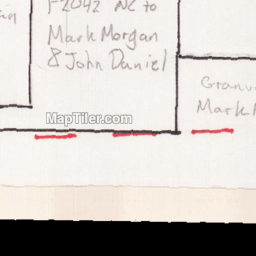 F2042 NC to
Mark Morgan
& John Daniel
Mark
MapTiler.com